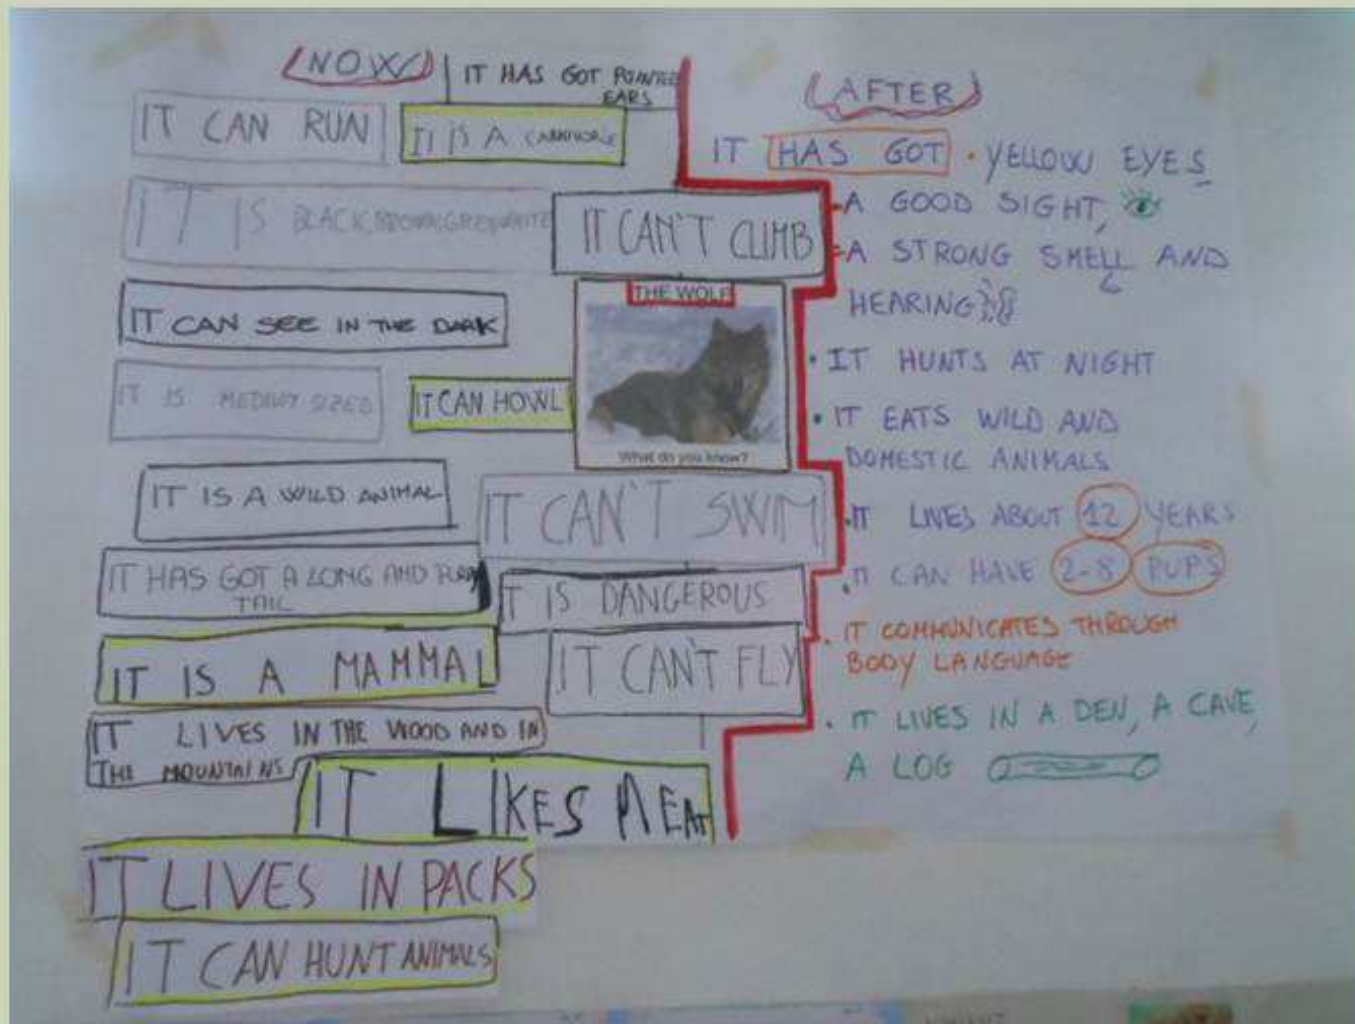 NOW
IT HAS GOT POINTED
EARS
IT CAN RUN
IT IS A CARNIVORE
IT IS BLACK, BROWN, GREY, WHITE
IT CAN'T CLIMB
IT CAN SEE IN THE DARK
THE WOLF
What do you know?
IT IS MEDIUM SIZED
IT CAN HOWL
IT IS A WILD ANIMAL
IT CAN'T SWIM
IT HAS GOT A LONG AND
TAIL
IT IS DANGEROUS
IT IS A MAMMAL
IT CAN'T FLY
IT LIVES IN THE WOOD AND IN
THE MOUNTAINS
IT LIKES MEAT
IT LIVES IN PACKS
IT CAN HUNT ANIMALS
AFTER
IT HAS GOT · YELLOW EYES
-A GOOD SIGHT,
-A STRONG SMELL AND
HEARING
· IT HUNTS AT NIGHT
· IT EATS WILD AND
DOMESTIC ANIMALS
· IT LIVES ABOUT 12 YEARS
· IT CAN HAVE 2-8 PUPS
· IT COMMUNICATES THROUGH
BODY LANGUAGE
· IT LIVES IN A DEN, A CAVE,
A LOG